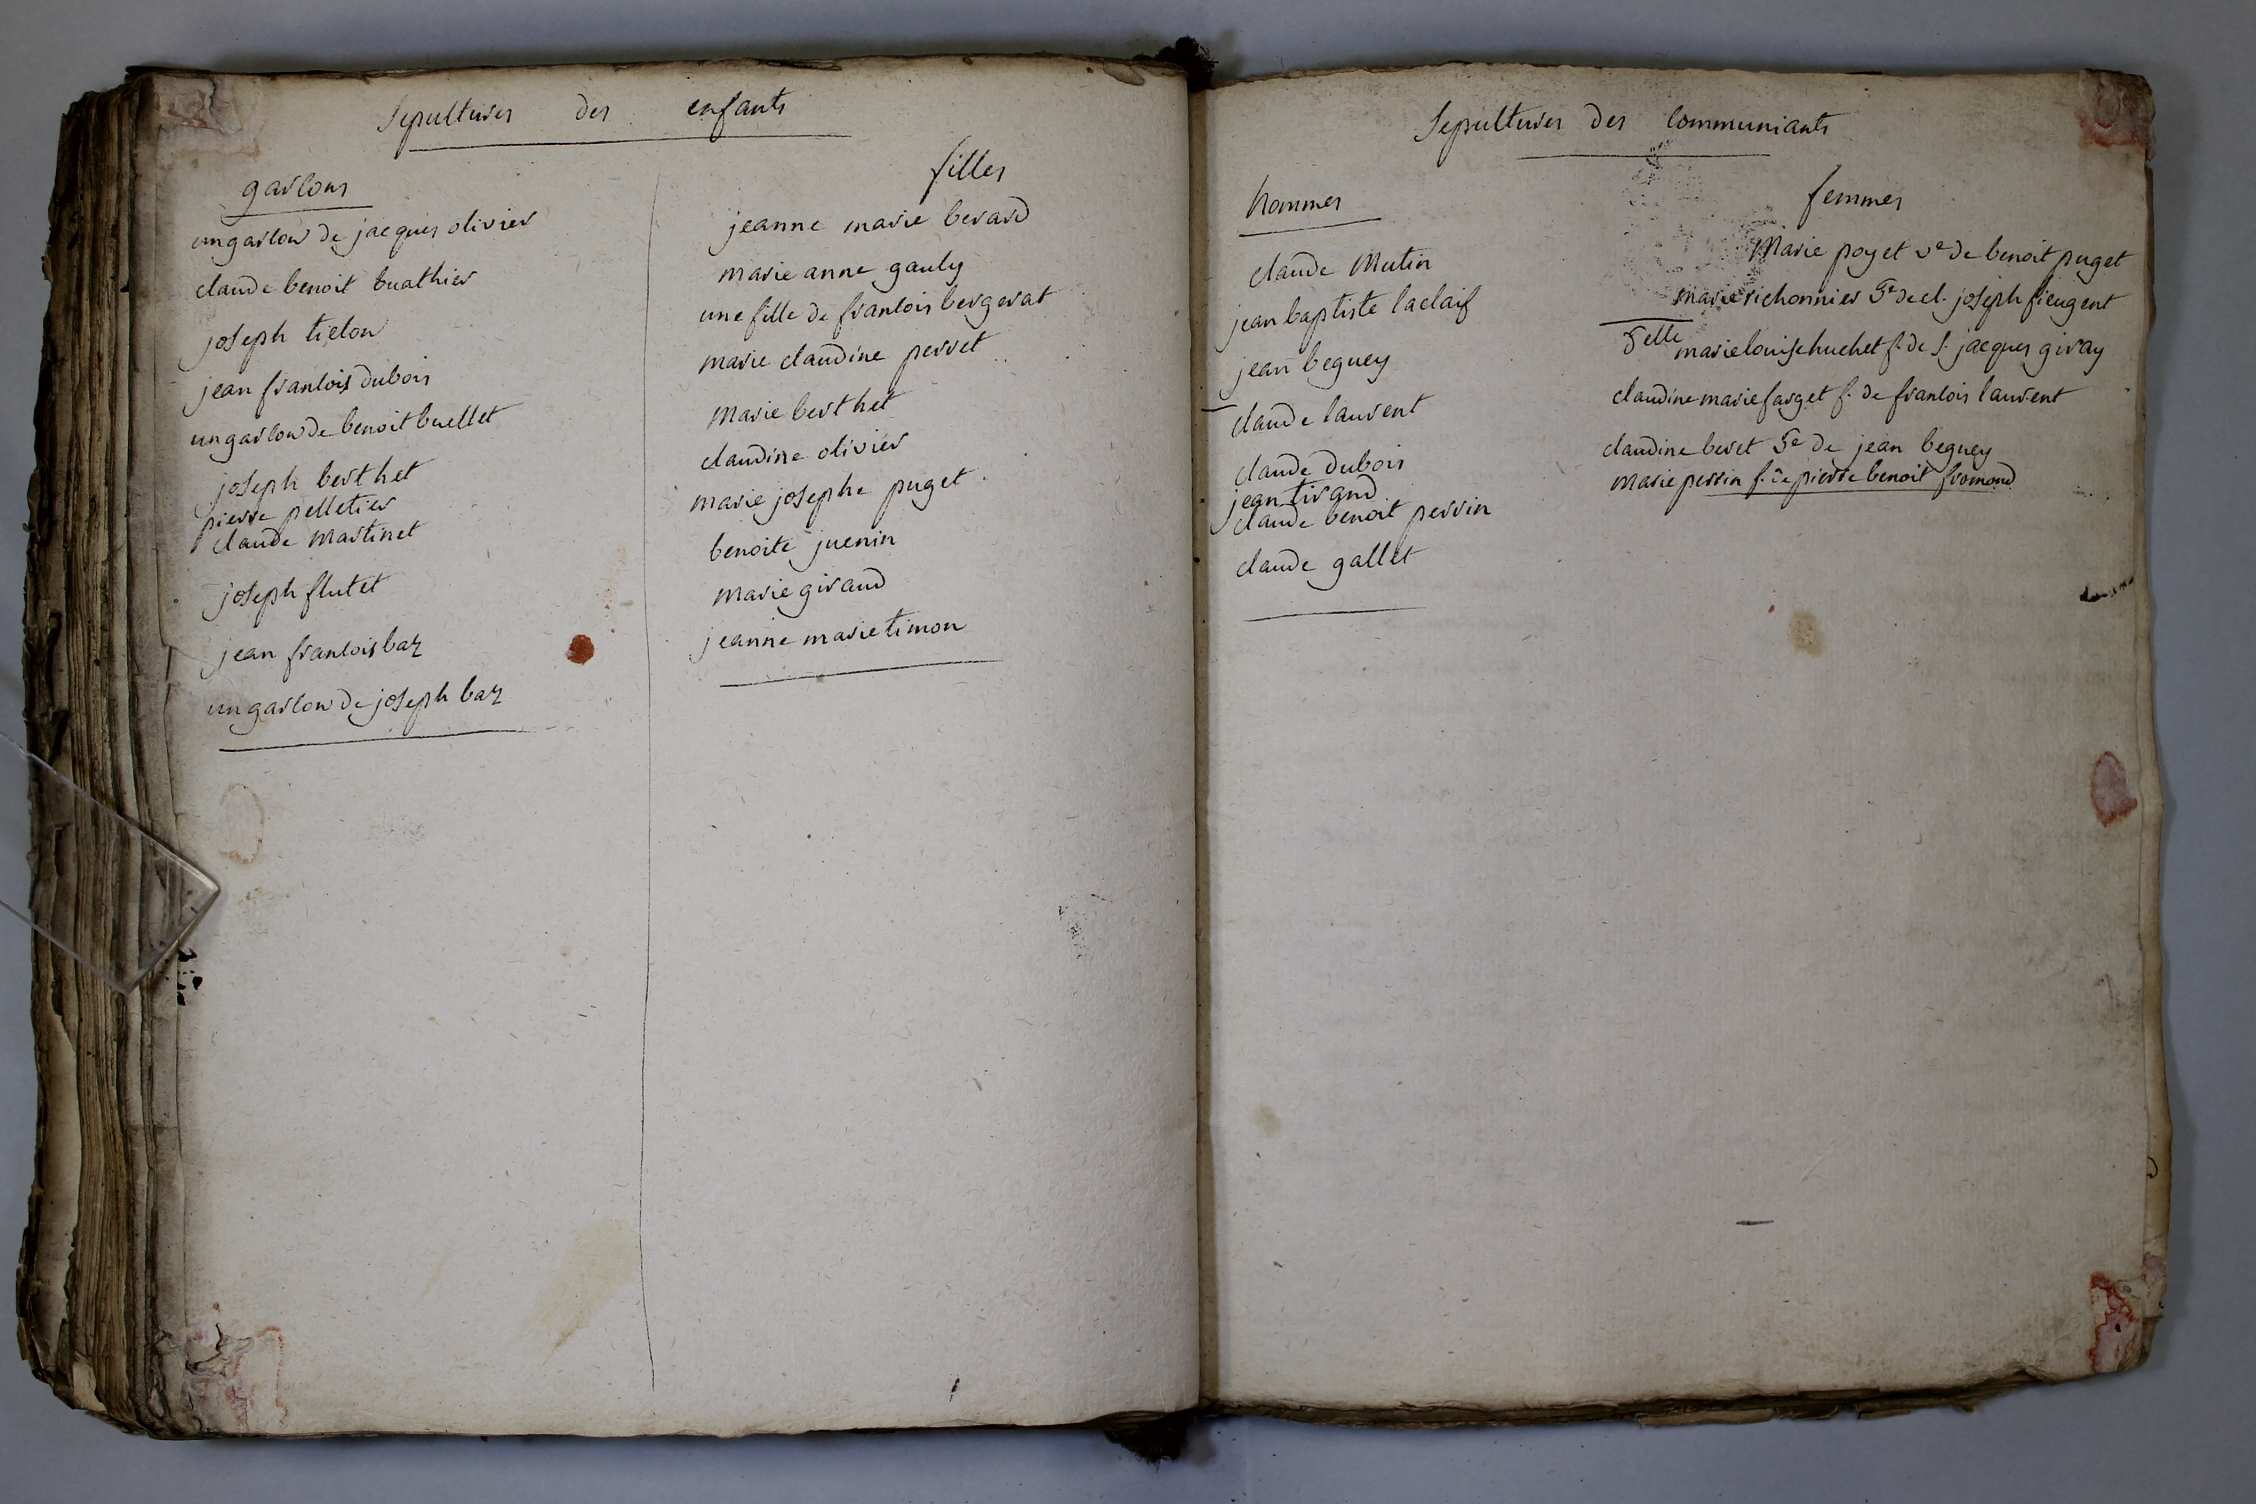 Sepultures des enfants
garcons
un garcon de jacques olivier
claude benoit buathier
joseph tielon
jean francois dubois
un garcon de benoit buellet
joseph berthet
pierre pelletier
claude Martinet
joseph flutet
jean francois baz
un garcon de joseph baz
filles
jeanne marie berard
marie anne gauly
une fille de francois bergerat
marie claudine perret
Marie berthet
claudine olivier
marie josephe puget
benoite juenin
marie giraud
jeanne marie timon
Sepultures des communiants
hommes
claude Mutin
jean baptiste laclaif
jean beguey
claude laurent
claude dubois
jean tiraud
claude benoit perrin
claude gallet
femmes
Marie poyet ve de benoit puget
marie richonnier de cl. joseph fieugent
Delle marie louise huchet f. de s. jacques giray
claudine marie farget f. de francois laurent
claudine beret de jean beguey
marie perrin f. de pierre benoit fromond